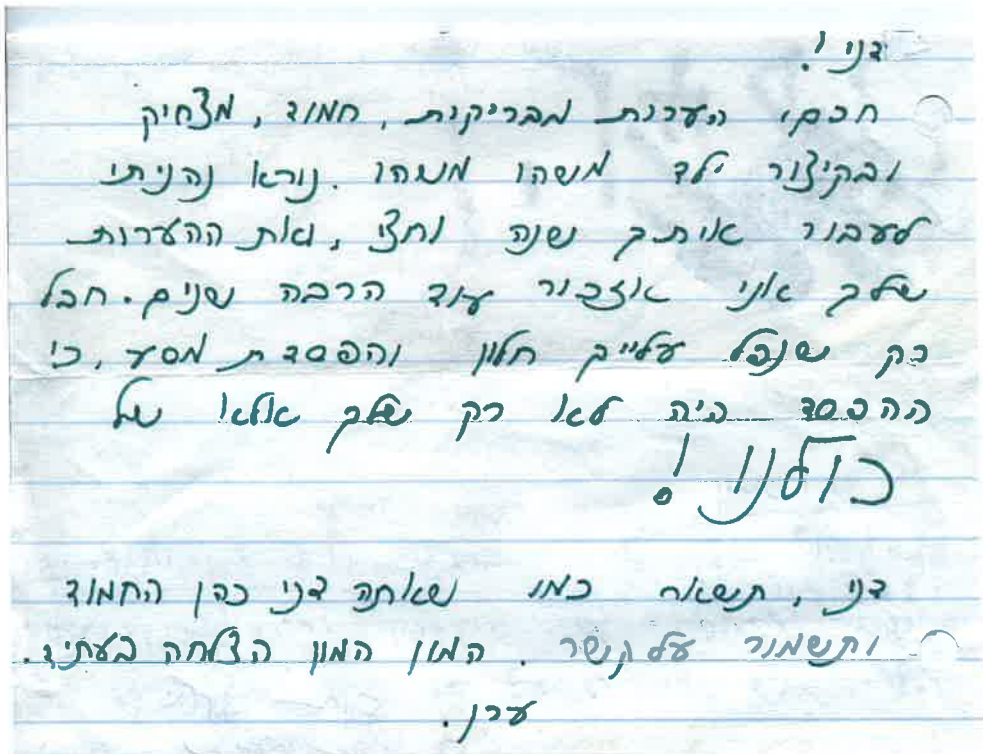 דני!
חכם, הערות מבריקות, חמוד, מצחיק
ובקיצור ילד משהו משהו. נורא נהניתי
לעבור איתך שנה וחצי, ואת ההערות
שלך אני אזכור עוד הרבה שנים. חבל
רק שנפל עלייך חלון והפסדת מסע, כי
ההפסד היה לא רק שלך אלא של
כולנו!
דני, תישאר כמו שאתה דני כהן החמוד
ותשמור על קשר. המון המון הצלחה בעתיד.
ערן.